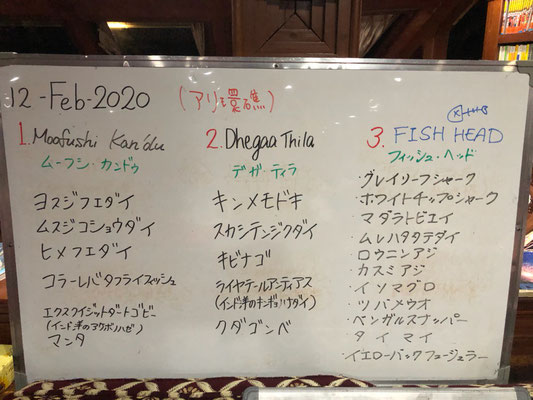 12-Feb-2020
(アリ環礁)
1. Moofushi Kandu
ムーフシ・カンドゥ
ヨスジフエダイ
ムスジコショウダイ
ヒメフエダイ
コラーレバタフライフィッシュ
エクスクイジットダートゴビー
(インド洋のアケボノハゼ)
マンタ
2. Dhegaa Thila
デガ・ティラ
キンメモドキ
スカシテンジクダイ
キビナゴ
ライヤテールアンティアス
(インド洋のキンギョハナダイ)
クダゴンベ
3. FISH HEAD
フィッシュ・ヘッド
・グレイリーフシャーク
・ホワイトチップシャーク
・マダラトビエイ
・ムレハタタテダイ
・ロウニンアジ
・カスミアジ
・イソマグロ
・ツバメウオ
・ベンガルスナッパー
・タイマイ
・イエローバックフュージュラー